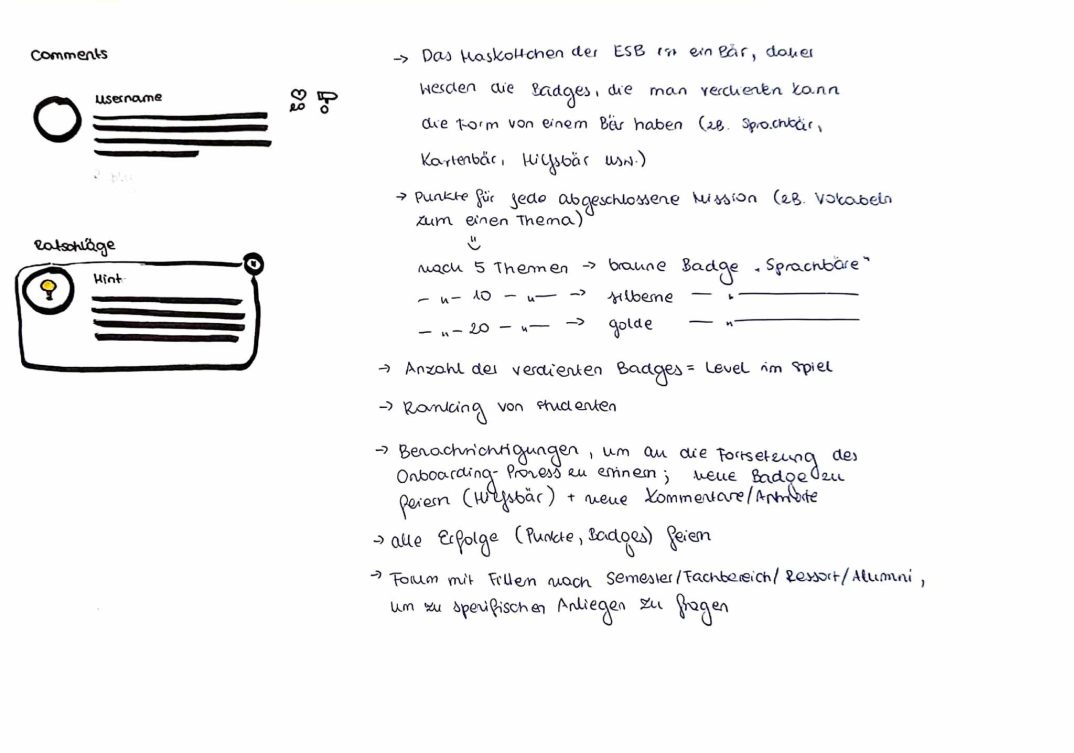 Comments
username
20
Ratschläge
Hint
→ Das Maskottchen der ESB ist ein Bär, daher
werden die Badges, die man verdienen kann
die Form von einem Bär haben (zB. Sprachbär,
Kartenbär, Hilfsbär usw.)
→ Punkte für jede abgeschlossene Mission (zB. Vokabeln
zum einen Thema)
nach 5 Themen → braune Badge "Sprachbäre"
— " — 10 — " — → silberne — " —
— " — 20 — " — → golde — " —
→ Anzahl der verdienten Badges = Level im Spiel
→ Ranking von Studenten
→ Benachrichtigungen, um an die Fortsetzung des
Onboarding-Prozess zu erinnern; neue Badge zu
feiern (Hilfsbär) + neue Kommentare/Antworte
→ alle Erfolge (Punkte, Badges) feiern
→ Forum mit Filtern nach Semester/Fachbereich/Ressort/Alumni,
um zu spezifischen Anliegen zu fragen